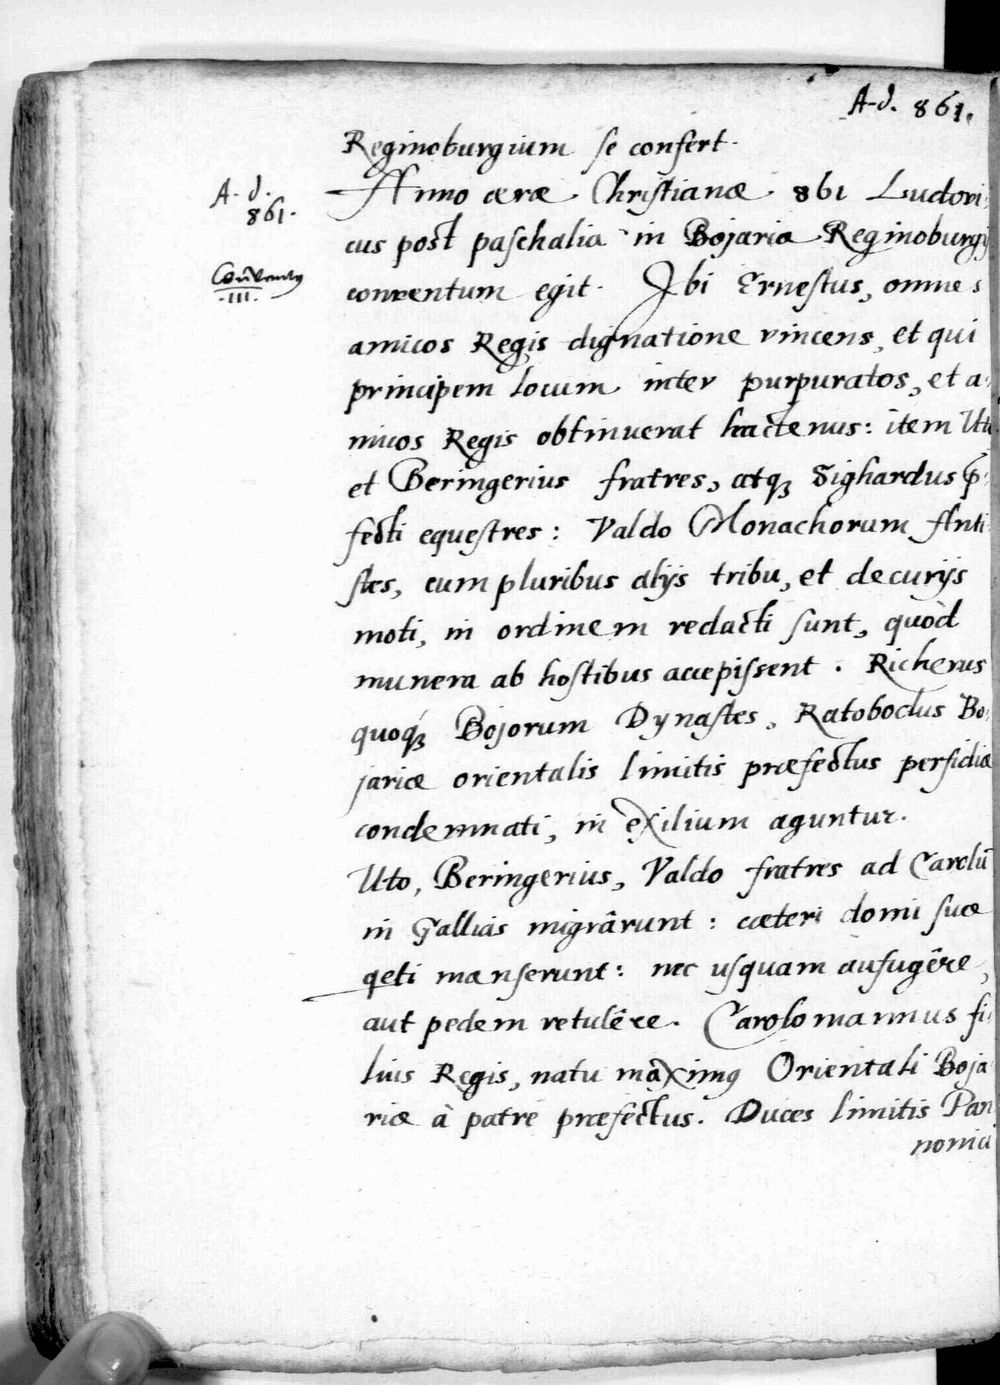 A. d. 861.
Reginoburgium se confert.
A. d.
861.
Anno æræ Christianæ 861 Ludovi-
cus post paschalia in Bojaria Reginoburgij
Conventus
III.
conventum egit. Ibi Ernestus, omnes
amicos Regis dignatione vincens, et qui
principem locum inter purpuratos, et a-
micos Regis obtinuerat hactenus: item Uto
et Beringerius fratres, atq; Sighardus p̄-
fecti equestres: Valdo Monachorum Anti-
stes, cum pluribus alijs tribu, et decurijs
moti, in ordinem redacti sunt, quòd
munera ab hostibus accepissent. Richerus
quoq; Bojorum Dynastes, Ratobodus Bo-
jariæ orientalis limitis præfectus perfidiæ
condemnati, in exilium aguntur.
Uto, Beringerius, Valdo fratres ad Carolū
in Gallias migrârunt: cæteri domi suæ
qeti manserunt: nec usquam aufugêre,
aut pedem retulêre. Carolomannus fi-
lius Regis, natu maximus Orientali Boja
riæ à patre præfectus. Duces limitis Pan
nonici